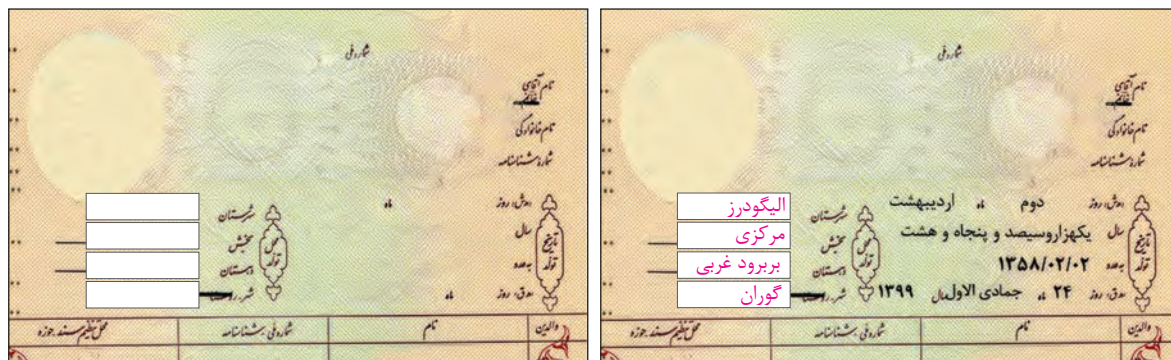 شماره ملی
نام آقای
خانم
نام خانوادگی
شماره شناسنامه
تاریخ تولد
روز دوم ماه اردیبهشت
سال یکهزاروسیصد و پنجاه و هشت
به عدد ۱۳۵۸/۰۲/۰۲
روز ۲۴ ماه جمادی الاول سال ۱۳۹۹
محل تولد
شهرستان الیگودرز
بخش مرکزی
دهستان بربرود غربی
شهر روستا گوران
والدین نام شماره ملی شناسنامه محل تنظیم سند حوزه
شماره ملی
نام آقای
خانم
نام خانوادگی
شماره شناسنامه
تاریخ تولد
روز ماه
سال
به عدد
روز ماه
محل تولد
شهرستان
بخش
دهستان
شهر روستا
والدین نام شماره ملی شناسنامه محل تنظیم سند حوزه